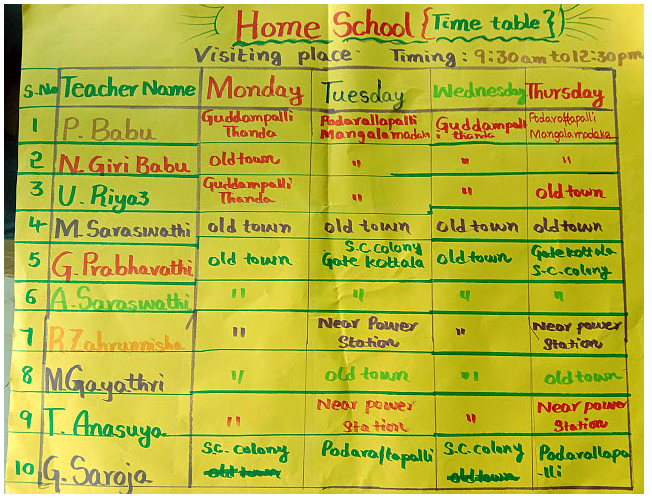 Home School {Time table}
Visiting place Timing: 9:30am to 12:30pm
S.No Teacher Name Monday Tuesday Wednesday Thursday
1 P. Babu Guddampalli Thanda Podarallapalli Mangalamadaka Guddampalli thanda Podarallapalli Mangalamadaka
2 N. Giri Babu old town " " "
3 U. Riyaz Guddampalli Thanda " " old town
4 M. Saraswathi old town old town old town old town
5 G. Prabhavathi old town S.C. colony Gate kottala old town Gate kottala S.c. colony
6 A. Saraswathi " " " "
7 R Zahrunnisha " Near Power Station " Near power Station
8 M. Gayathri " old town " old town
9 T. Anasuya " Near power Station " Near power Station
10 G. Saroja S.C. colony old town Podarallapalli S.C. colony old town Podarallapalli